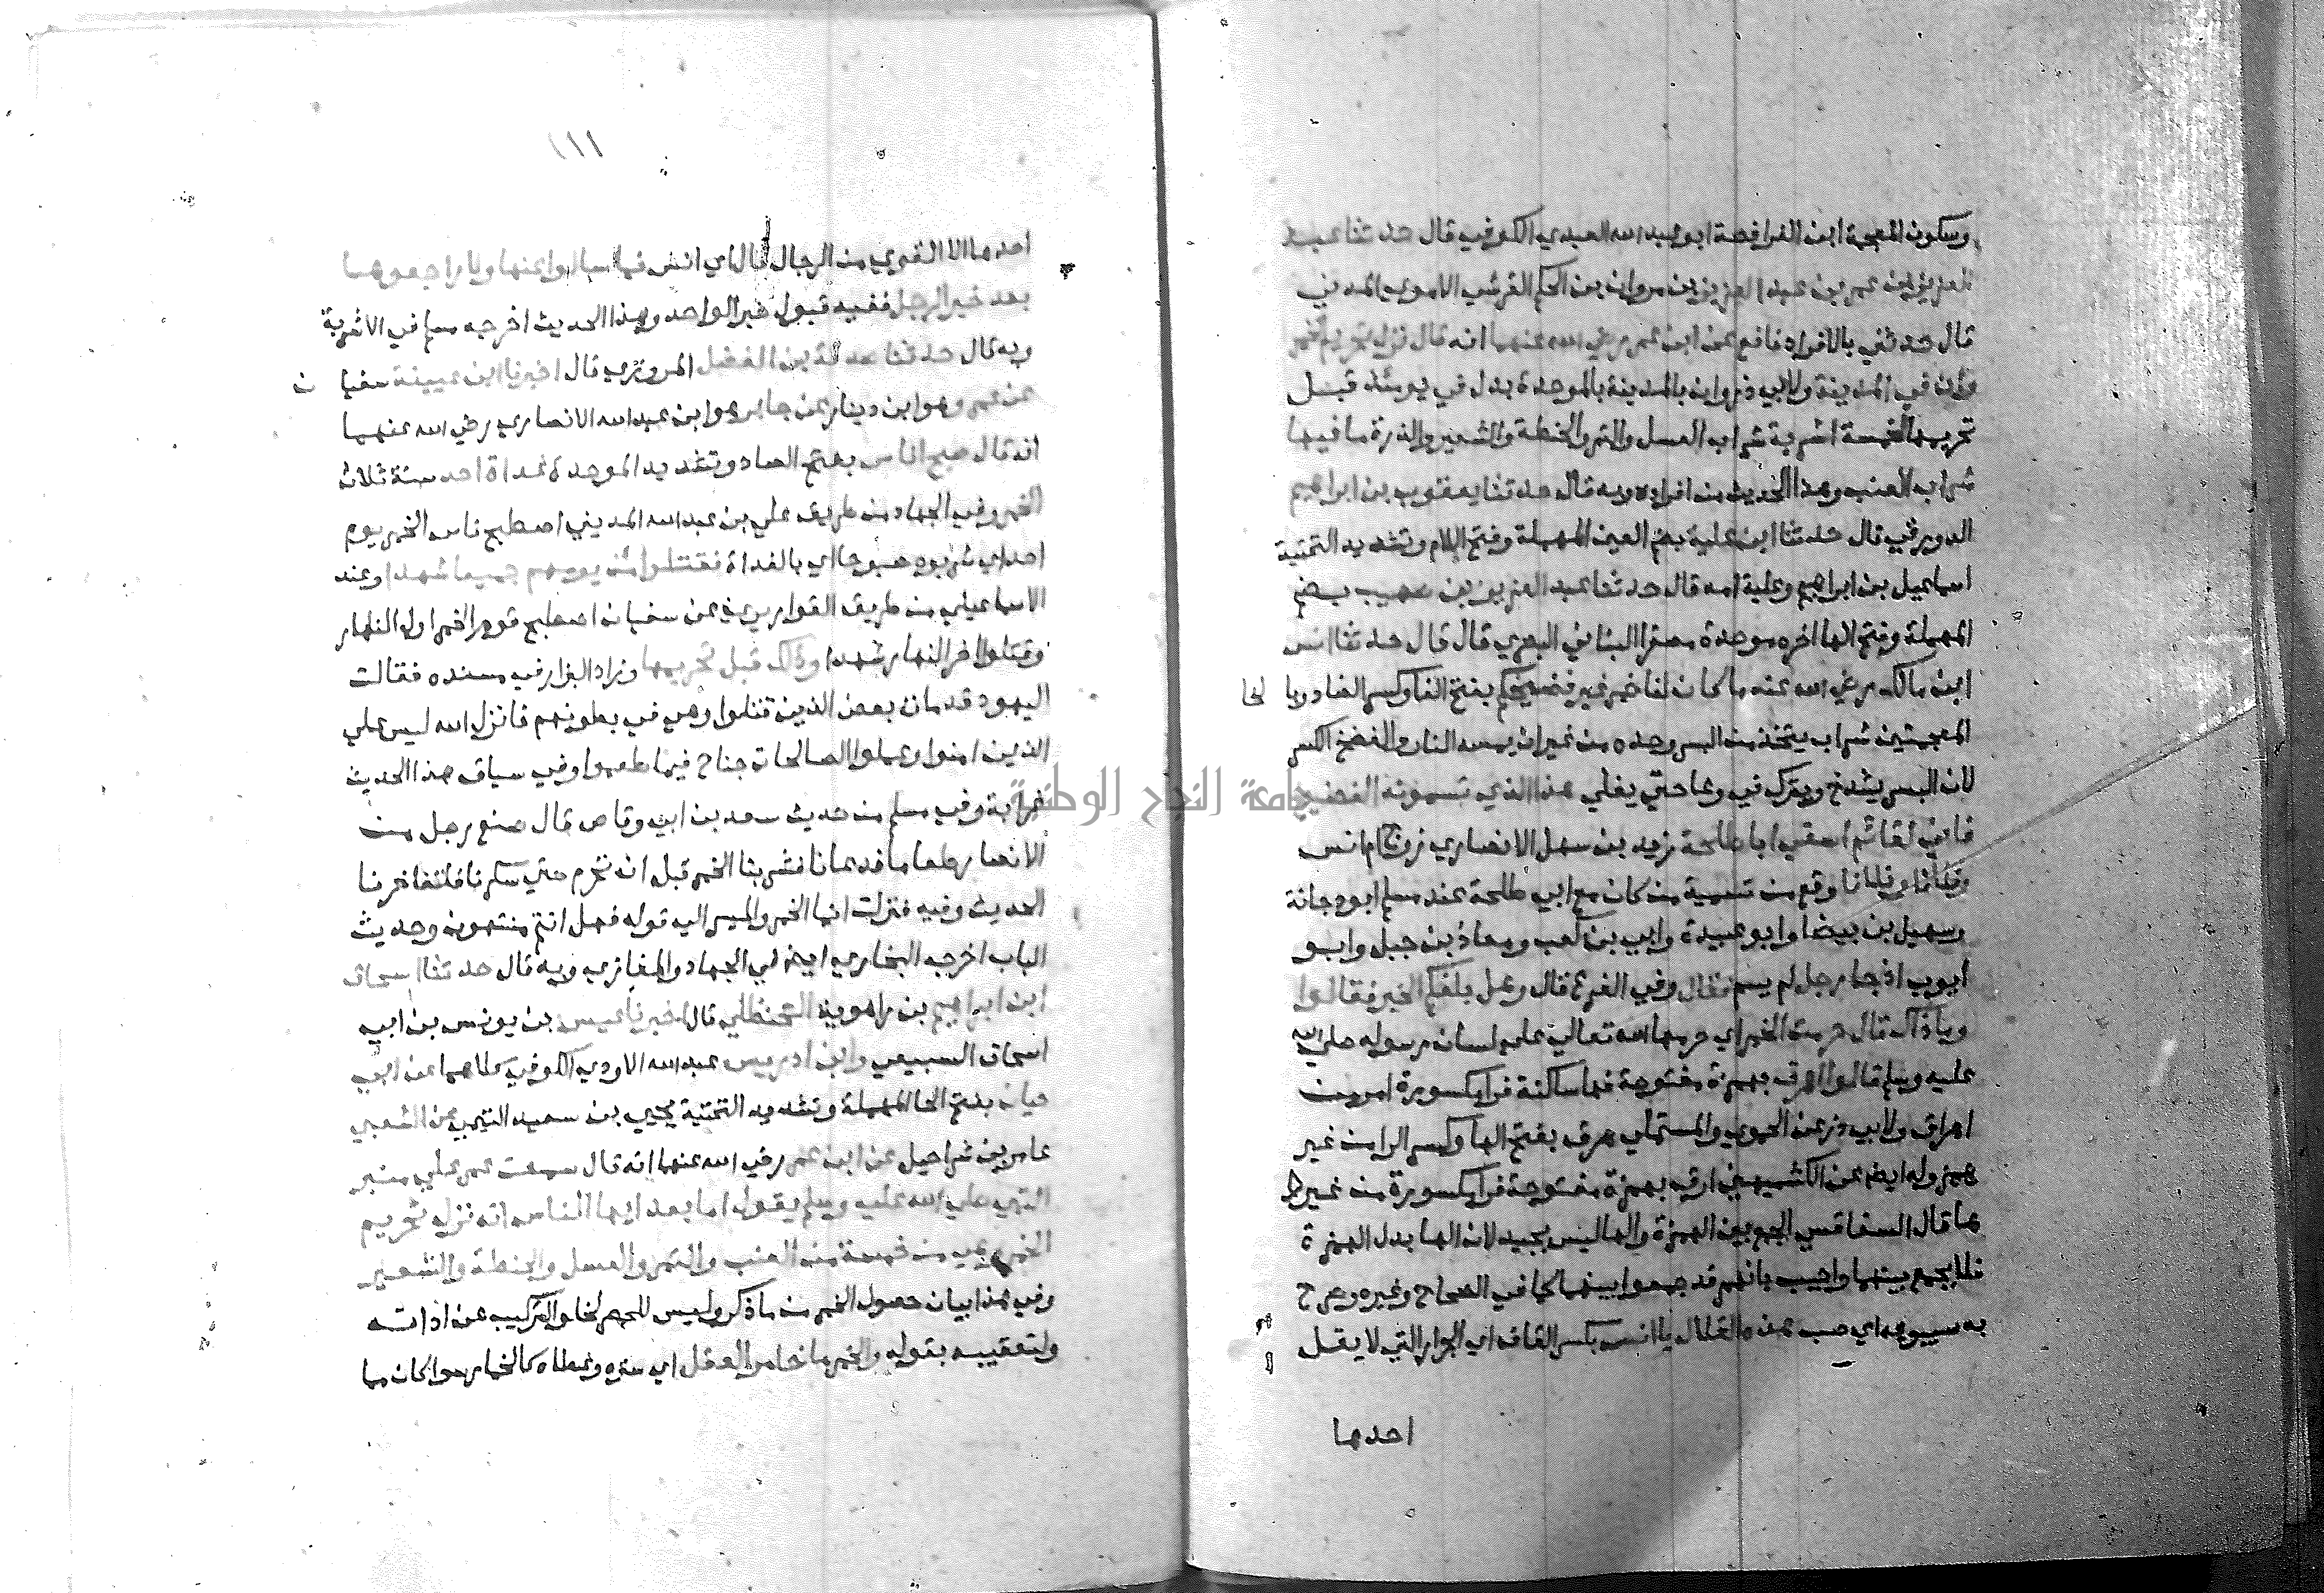 وسكون المعجمة ابن الفرافصة ابو عبد الله العبدي الكوفي قال حدثنا عبد
العزيز بن عمر بن عبد العزيز بن مروان بن الحكم القرشي الاموي المدني
قال حدثني بالافراد نافع عن ابن عمر رضي الله عنهما انه قال نزل تحريم الخمر
وان في المدينة ولابي ذر وان بالمدينة بالموحدة بدل في يومئذ قبل
تحريمها لخمسة اشربة شراب العسل والتمر والحنطة والشعير والذرة ما فيها
شراب العنب وهذا الحديث من افراده وبه قال حدثنا يعقوب بن ابراهيم
الدورقي قال حدثنا ابن علية بضم العين المهملة وفتح اللام وتشديد التحتية
اسماعيل بن ابراهيم وعلية امه قال حدثنا عبد العزيز بن صهيب بضم
المهملة وفتح الها اخره موحدة مصغرا البناني البصري قال قال حدثنا انس
ابن مالك رضي الله عنه ما كان لنا خمر غير فضيخكم بفتح الفا وكسر الضاد وبا لخا
المعجمتين شراب يتخذ من البسر وحده من غير ان يمسه النار والفضخ الكسر
لان البسر يشدخ ويترك في وعا حتي يغلي هذا الذي تسمونه الفضيخ
فاني لقائم اسقي ابا طلحة زيد بن سهل الانصاري زوج ام انس
وفلانا وفلانا وقع من تسمية من كان مع ابي طلحة عند مسلم ابو دجانة
وسهيل بن بيضا وابو عبيدة وابي بن كعب ومعاذ بن جبل وابو
ايوب اذ جا رجل لم يسم فقال وفي الفرع قال وهل بلغكم الخبر فقالوا
وما ذاك قال حرمت الخمر اي حرمها الله تعالي علي لسان رسوله صلي الله
عليه وسلم قالوا اهرق بهمزة مفتوحة فها ساكنة فرا مكسورة امر من
اهراق ولابي ذر عن الحموي والمستملي هرق بفتح الها وكسر الرا من غير
همز وله ايضا عن الكشميهني ارق بهمزة مفتوحة فرا مكسورة من غير
ها قال السفاقسي الجمع بين الهمزة والها ليس بجيد لان الها بدل الهمزة
فلا يجمع بينهما واجيب بانهم قد جمعوا بينهما كما في الصحاح وغيره وصرح
به سيبويه اي صب هذه القلال يا انس بكسر القاف اي الجرار التي لا يقل
احدها
جامعة النجاح الوطنية
١١١
احدها الا القوي من الرجال قال اي انس فما سالوا عنها ولا راجعوها
بعد خبر الرجل ففيه قبول خبر الواحد وهذا الحديث اخرجه مسلم في الاشربة
وبه قال حدثنا صدقة بن الفضل المروزي قال اخبرنا ابن عيينة سفيا ن
عن عمرو هو ابن دينار عن جابر هو ابن عبد الله الانصاري رضي الله عنهما
انه قال صبح اناس بفتح الصاد وتشديد الموحدة غداة احد سنة ثلاث
الخمر وفي الجهاد من طريق علي بن عبد الله المديني اصطبح ناس الخمر يوم
احد اي شربوه صبوحا اي بالغداة فقتلوا من يومهم جميعا شهدا وعند
الاسماعيلي من طريق القواريري عن سفيان اصطبح قوم الخمر اول النهار
وقتلوا اخر النهار شهدا وذلك قبل تحريمها وزاد البزار في مسنده فقالت
اليهود قد مات بعض الذين قتلوا وهي في بطونهم فانزل الله ليس علي
الذين امنوا وعملوا الصالحات جناح فيما طعموا وفي سياق هذا الحديث
غرابة وفي مسلم من حديث سعد بن ابي وقاص قال صنع رجل من
الانصار طعاما فدعانا فشربنا الخمر قبل ان تحرم حتي سكرنا فتفاخرنا
الحديث وفيه فنزلت انما الخمر والميسر الي قوله فهل انتم منتهون وحديث
الباب اخرجه البخاري ايضا في الجهاد والمغازي وبه قال حدثنا اسحاق
ابن ابراهيم بن راهويه الحنظلي قال اخبرنا عيسي بن يونس بن ابي
اسحاق السبيعي وابن ادريس عبد الله الاودي الكوفي كلاهما عن ابي
حيان بفتح الحا المهملة وتشديد التحتية يحيي بن سعيد التيمي عن الشعبي
عامر بن شراحيل عن ابن عمر رضي الله عنهما انه قال سمعت عمر علي منبر
النبي صلي الله عليه وسلم يقول اما بعد ايها الناس انه نزل تحريم
الخمر وهي من خمسة من العنب والتمر والعسل والحنطة والشعير
وفي هذا بيان حصول الخمر من ما ذكر وليس للحصر لخلو التركيب عن اداته
ولتعقيبه بقوله والخمر ما خامر العقل اي ستره وغطاه كالخمار سوا كان مما